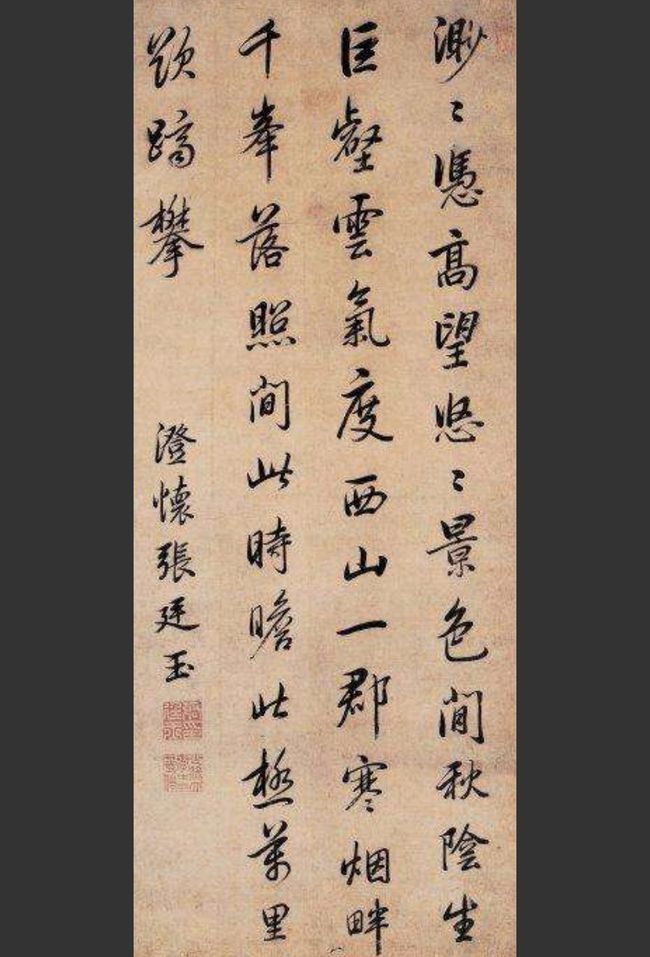 渺〻憑高望悠〻景色閒秋陰生
巨壑雲氣度西山一郡寒烟畔
千峯落照間此時瞻此極萬里
欲躋攀
澄懷張廷玉